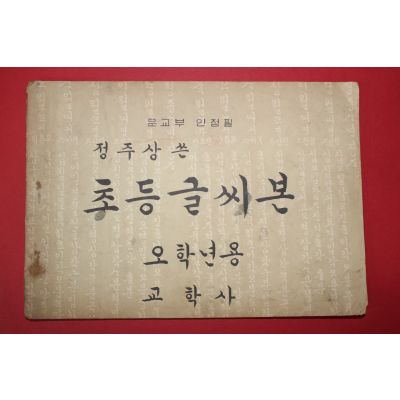 문교부 인정필
정주상 쓴
초등글씨본
오학년용
교학사